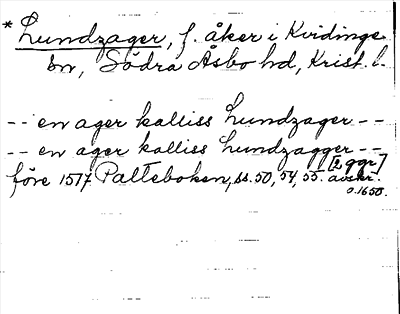 * Lundzager, f. åker i Kvidinge
sn, Södra Åsbo hd, Krist. l.
-- en ager kalliss Lundzager --
-- en ager kalliss Lundzagger -- [2 ggr]
före 1517 Palteboken, ss. 50, 54, 55. avskr.
o. 1650.